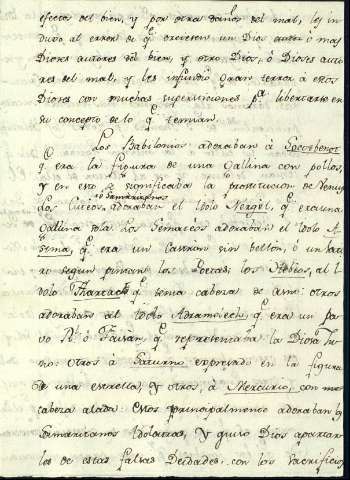 efectos del bien, y por otros daños del mal, les in
dujo al error de q.e creiesen un Dios autor ó mas
Dioses autores del bien, y otro Dios, ó Dioses auto
res del mal, y les infundió gran terror á estos
Dioses con muchas supersticiones p.a libertarse en
su concepto de lo q.e temian.
Los Babilonios adoraban á Socotbenot
q.e era la figura de una Gallina con pollos,
y en esto se significaba la prostitucion de Venus
ó Samaritanos
Los Cuteos adoraban el Idolo Nergel, q.e era una
Gallina sola Los Hemateos adoraban el Idolo A
sima, q.e era un Castron sin bellon, ó un Satiro
segun pintan los Poetas; los Hebios, al I
dolo Thartach q.e tenia cabeza de asno: otros
adoraban al Idolo Adramelech q.e era un pa
vo R.l ó Faisan, q.e representaba la Diosa Ju
no: otros á Saturno expresado en la figura
de una estrella, y otros, á Mercurio, con
cabeza alada: esto principalmente adoraban los
Samaritanos Idolatras, y quiso Dios apartar
les de estas falsas Deidades, con los sacrificios